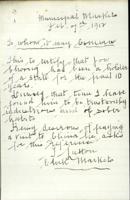 Municipal Markets
Feb. 9th 1912
To whom it may Concern
This to certify that for
has been a holder
of a stall for the past 10
years.
During that time I have
found him to be trustworthy
industrious and of sober
habits
Being desirous of paying
a visit to China he asks
for this
Markets